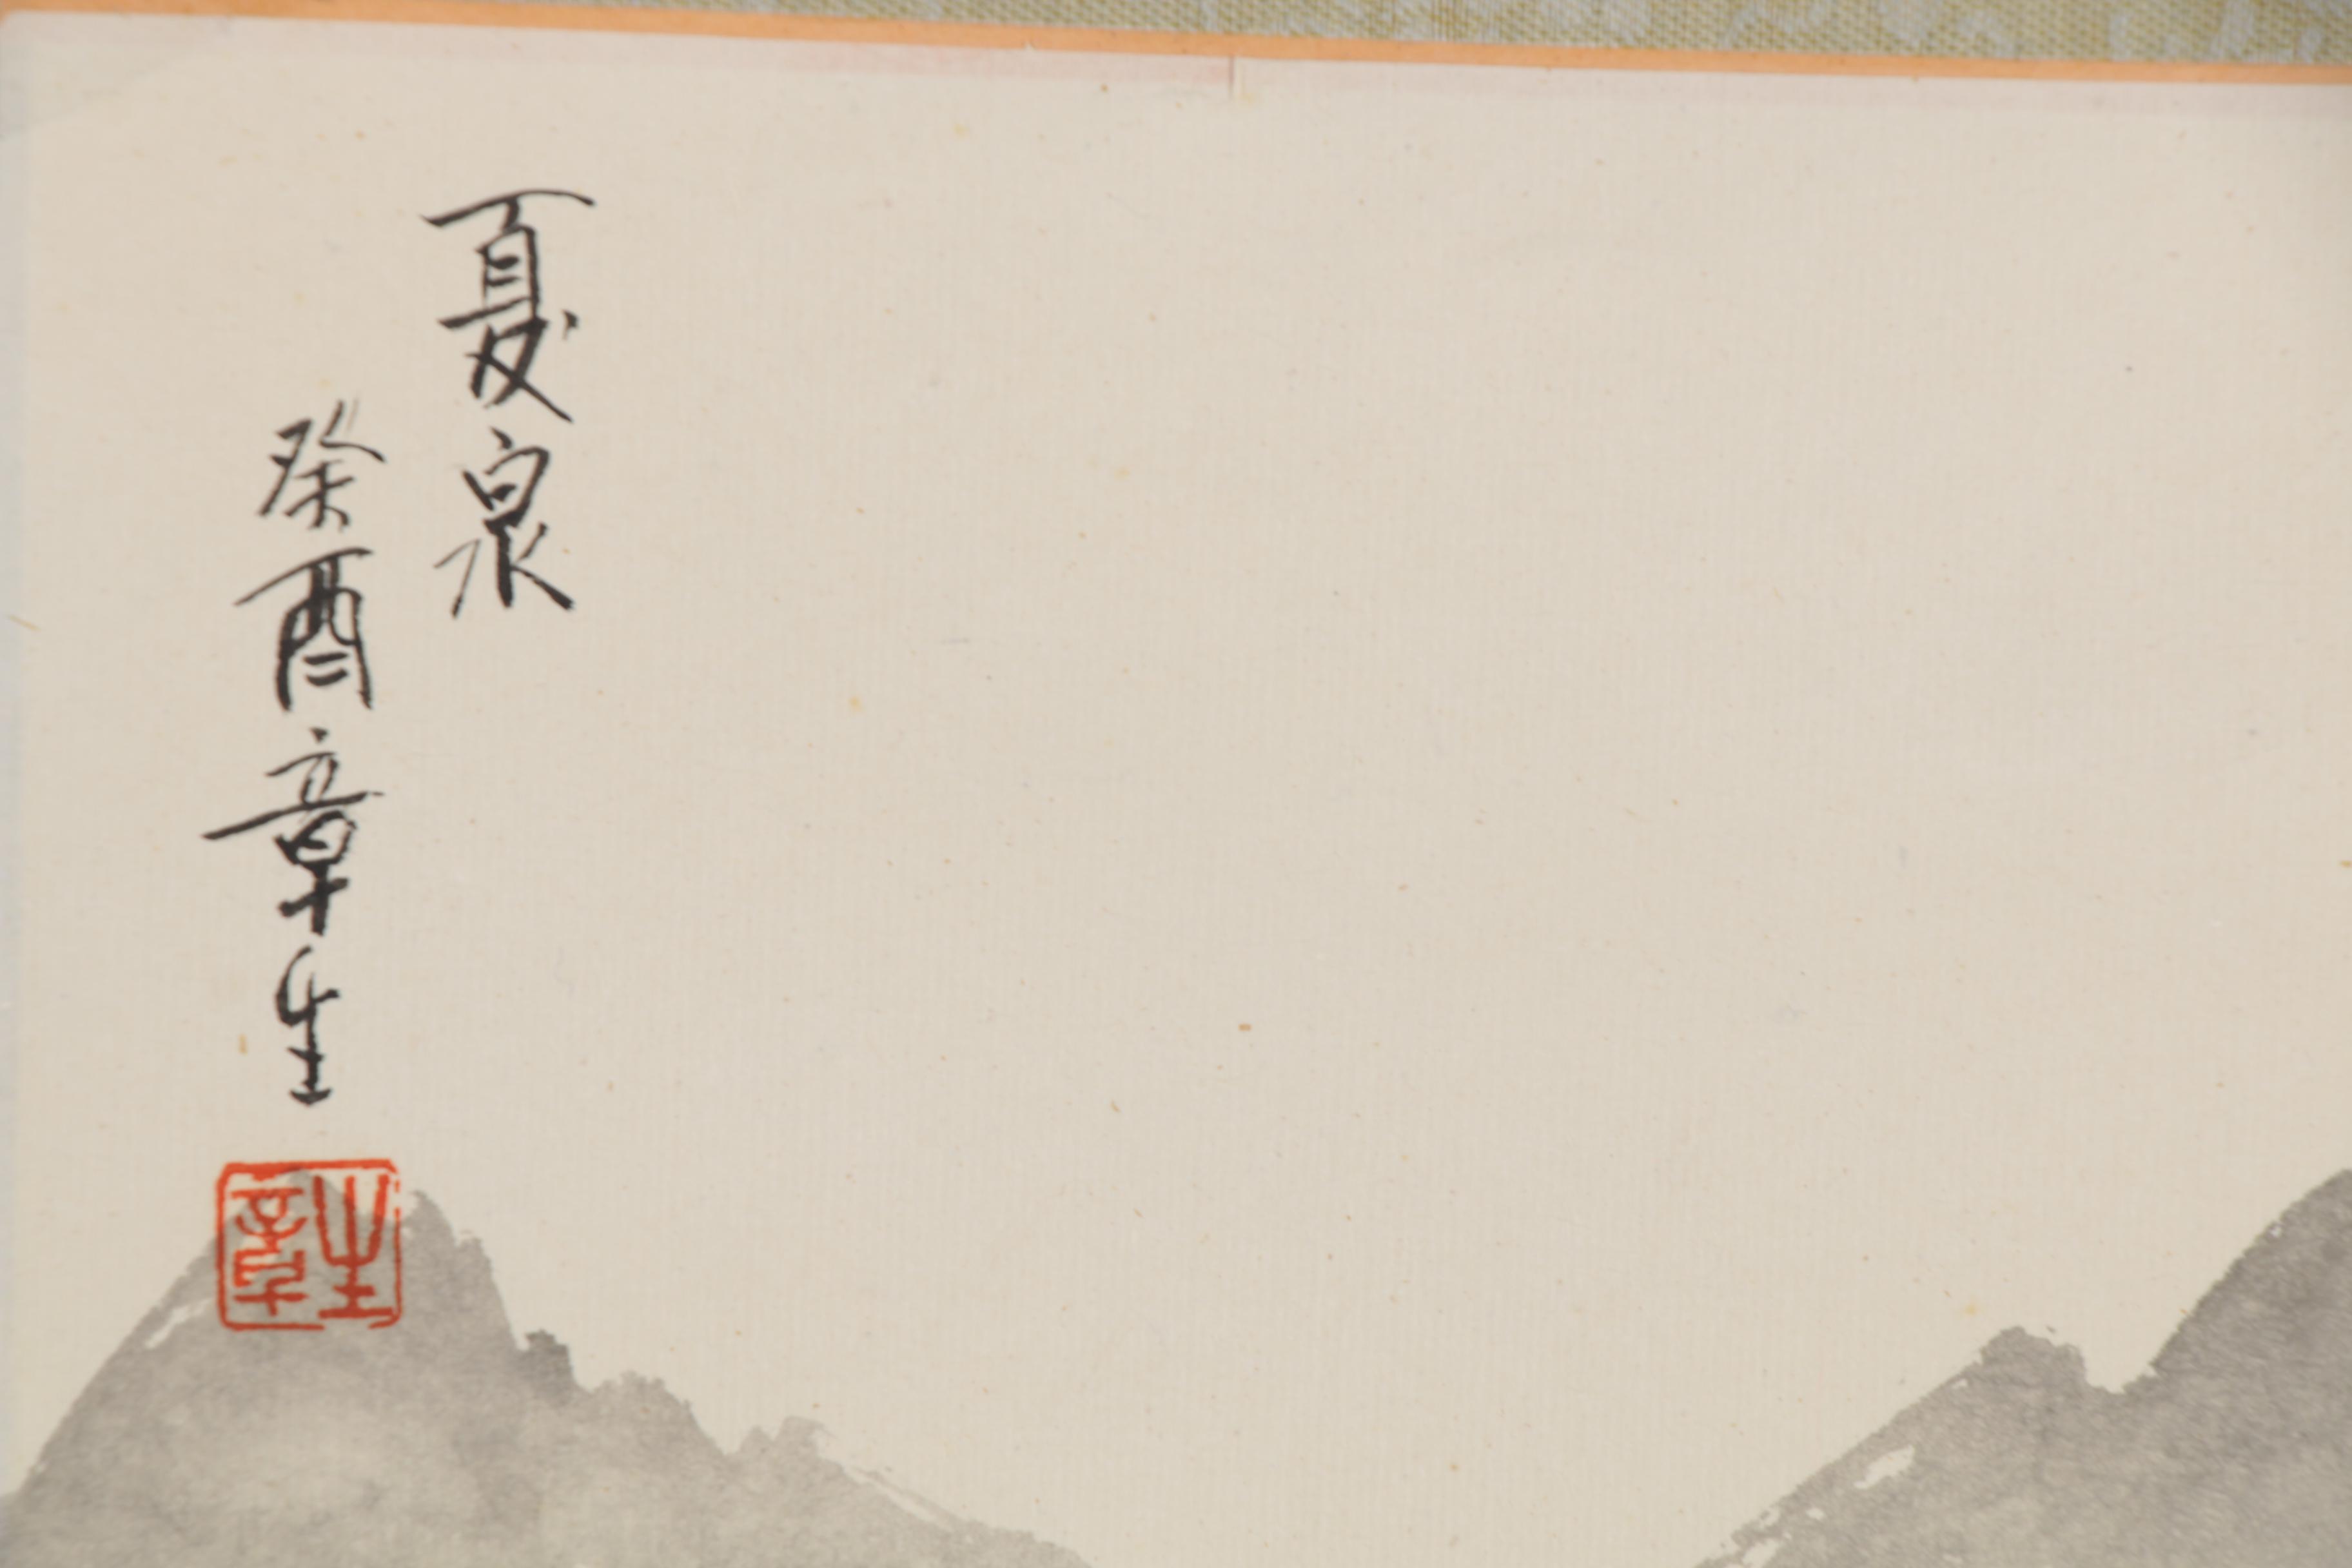 夏泉
癸酉章生
章生